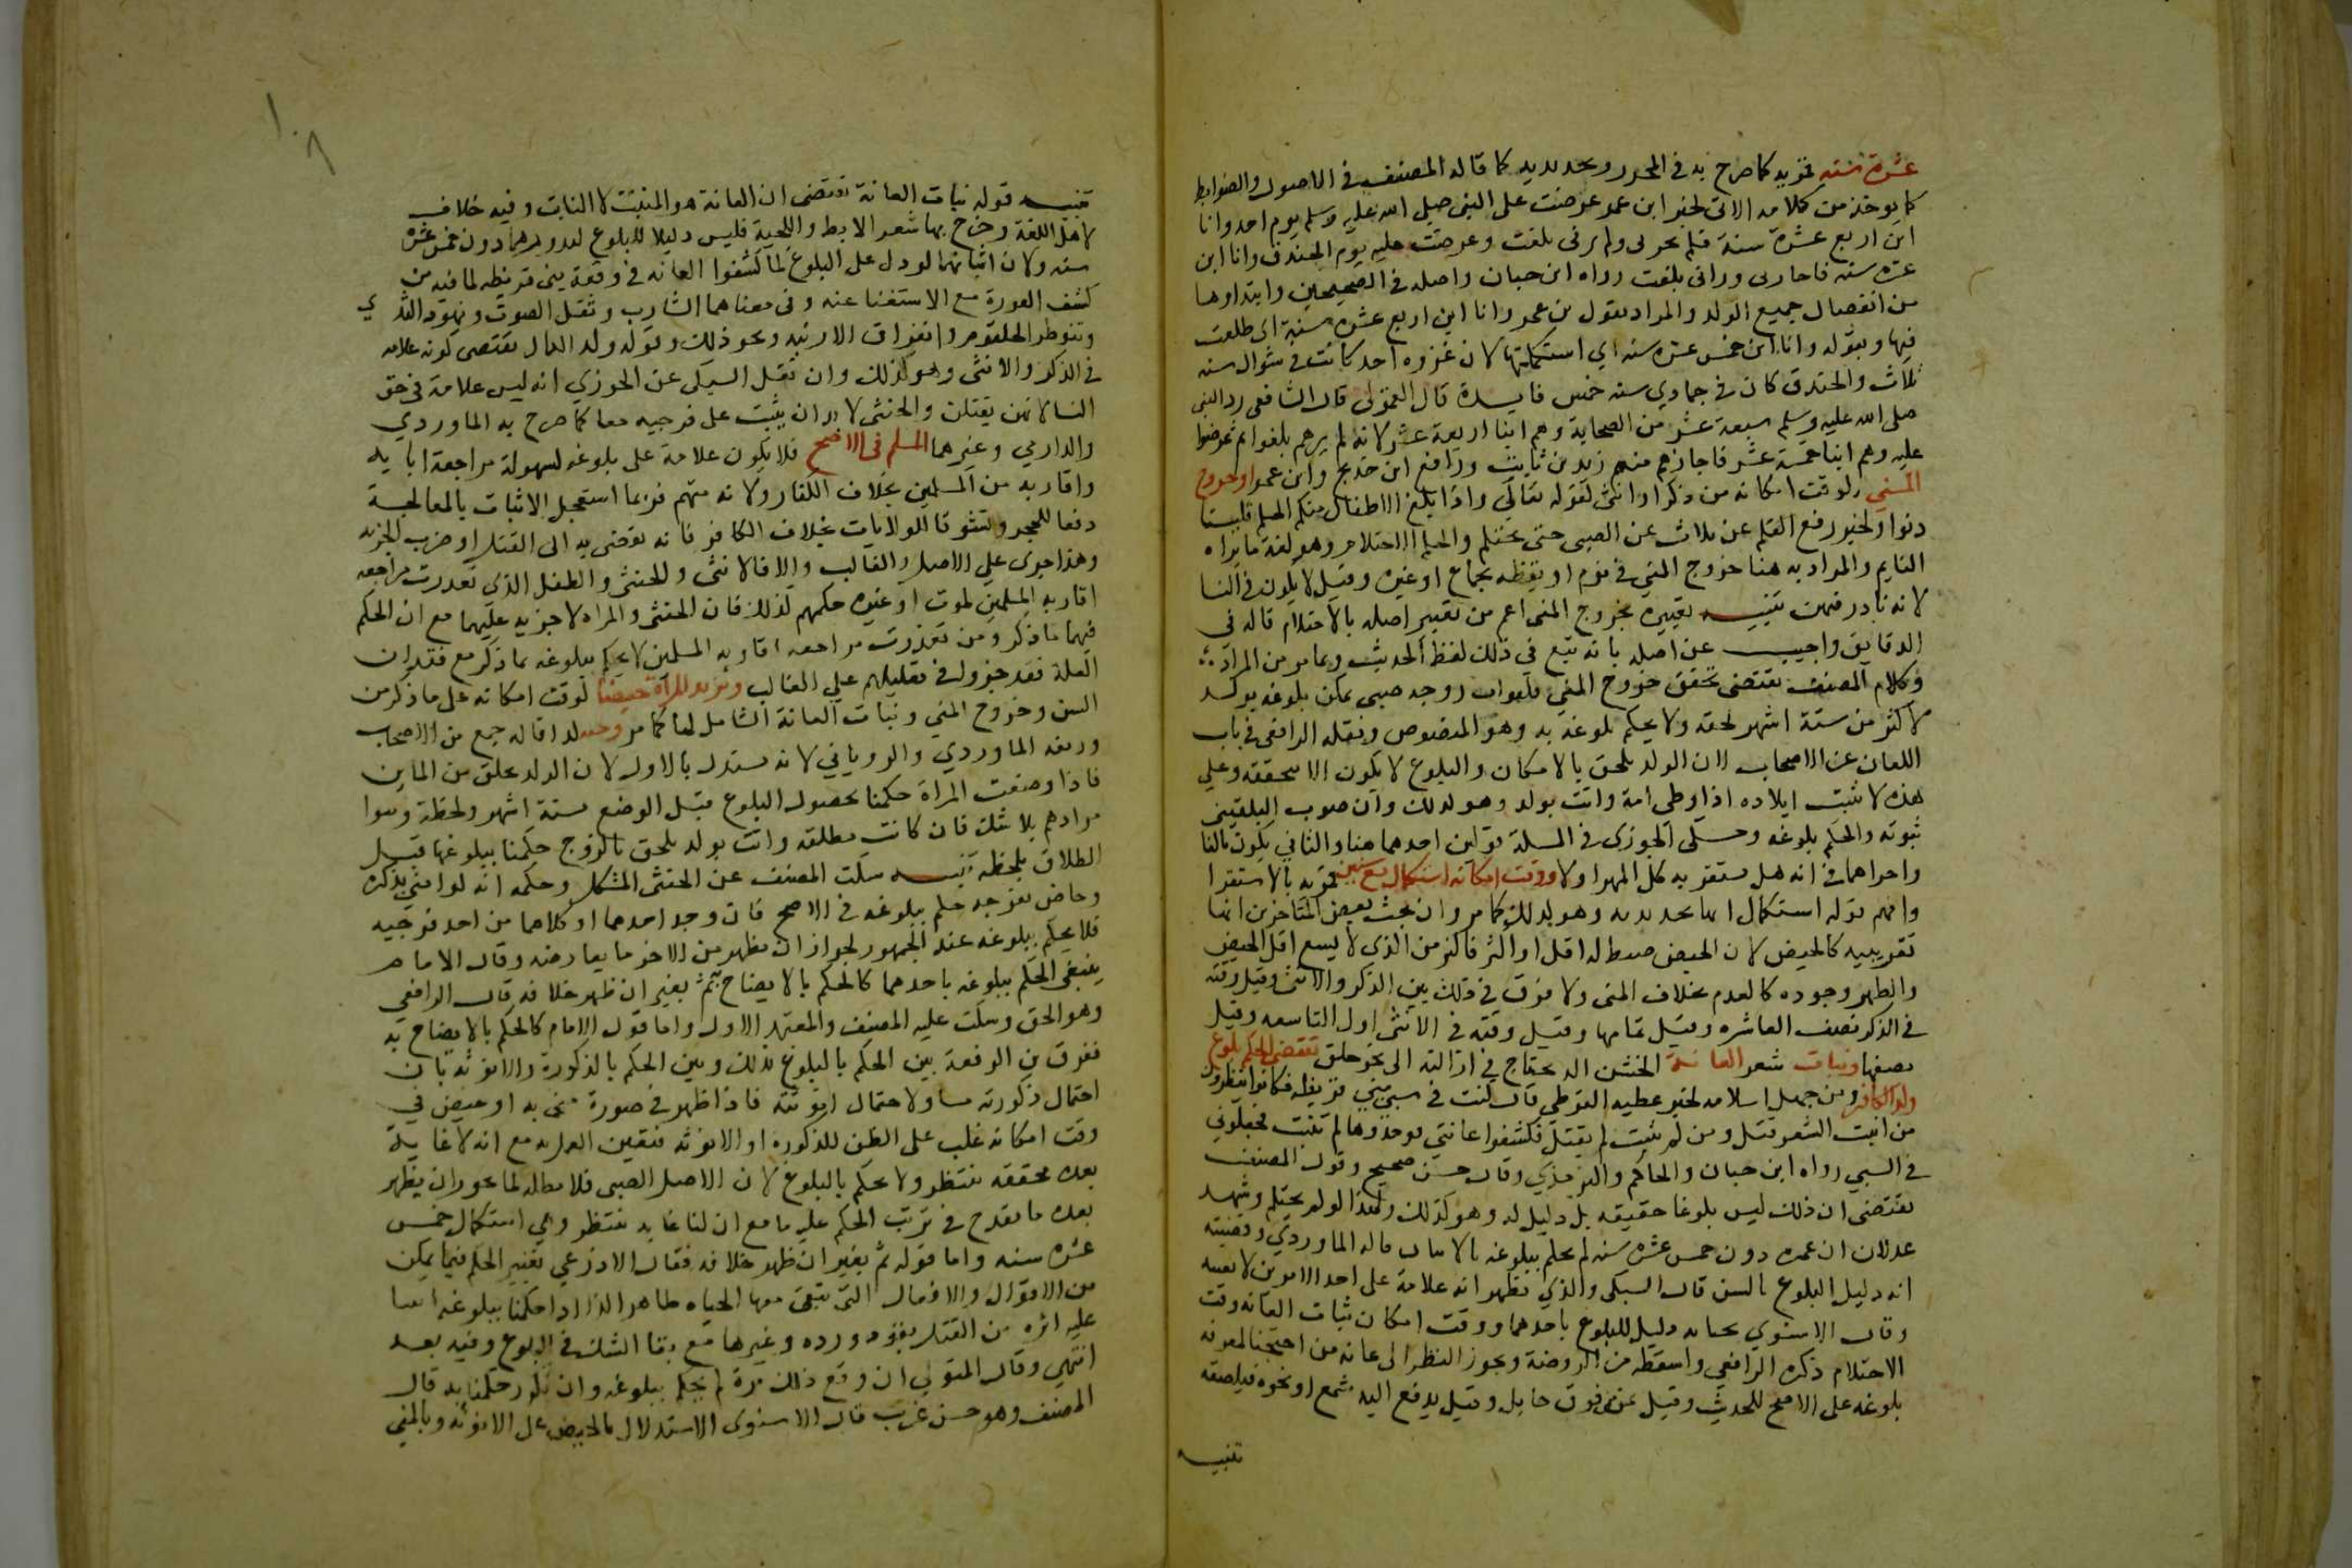 عشرة سنة قمرية كما صرح به في المحرر وتحديدية كما قاله المصنف في الاصول والضوابط
كما يوخذ من كلامه الاتي لخبر ابن عمر عرضت على النبي صلى الله عليه وسلم يوم احد وانا
ابن اربع عشرة سنة فلم يجزني ولم يرني بلغت وعرضت عليه يوم الخندق وانا ابن
عشره سنه فاجازني وراني بلغت رواه ابن حبان واصله في الصحيحين وابتداوها
من انفصال جميع الولد والمراد بقول بن عمر وانا ابن اربع عشرة سنة اى طعنت
فيها وبقوله وانا ابن خمس عشره سنه اي استكملتها لان غزوه احد كانت في شوال سنه
ثلاث والخندق كان في جمادي سنه خمس فايدة قال القمولى قال الشافعى رد النبى
صلى الله عليه وسلم سبعة عشر من الصحابة وهم ابنا اربعة عشر لانه لم يرهم بلغوا ثم عرضوا
عليه وهم ابنا خمسة عشر فاجازهم منهم زيد بن ثابت ورافع ابن خديج وابن عمر او خروج
المني لوقت امكانه من ذكر او انثى لقوله تعالى واذا بلغ الاطفال منكم الحلم فليستا
ذنوا ولخبر رفع القلم عن ثلاث عن الصبى حتى يحتلم والحلم الاحتلام وهو لغة ما يراه
النايم والمراد به هنا خروج المني في نوم او يقظه بجماع او غيره وقيل لا يكون في النسا
لانه نادر فيهن تنبيه تعبيره بخروج المنى اعم من تعبير اصله بالاحتلام قاله فى
الدقايق واجيب عن اصله بانه تبع في ذلك لفظ الحديث وبما مر من المراد
وكلام المصنف يقتضى تحقق خروج المني فلو اتت زوجه صبى يمكن بلوغه بولد
لاكثر من ستة اشهر لحقه ولا يحكم بلوغه به وهو المنصوص ونقله الرافعى في باب
اللعان عن الاصحاب لان الولد يلحق بالامكان والبلوغ لا يكون الا بتحققه وعلى
هذه لا يثبت ايلاده اذا وطى امة واتت بولد وهو كذلك وان صوب البلقينى
ثبوته والحكم بلوغه وحكى الجوزى في المسلة قولين احدهما هذا والثاني يكون بالغا
واجراهما في انه هل يستقر به كل المهر اولا ووقت امكانه استكمال تسع سنين قمريه بالاستقرا
وافهم قوله استكمال انها تحديديه وهو كذلك كما مر وان بحث بعض المتاخرين انها
تقريبيه كالحيض لان الحيض ضبط له اقل او اكثر فالزمن الذي لا يسع اقل الحيض
والطهر وجوده كالعدم بخلاف المنى ولا فرق في ذلك بين الذكر والانثى وقيل وقته
في الذكر نصف العاشره وقيل تمامها وقيل وقته في الانثى اول التاسعه وقيل
نصفها ونبات شعر العانة الخشن الذ يحتاج في ازالته الى نحو حلق يقتضي الحكم بلوغ
ولد الكافر ومن جهل اسلامه لخبر عطيه القرظي قال كنت في سبي بني قريظه فكانوا ينظرون
من انبت الشعر قتل ومن لم ينبت لم يقتل فكشفوا عانتي فوجدوها لم تنبت فجعلوني
في السبي رواه ابن حبان والحاكم والترمذي وقال حسن صحيح وقول المصنف
يقتضى ان ذلك ليس بلوغا حقيقه بل دليل له وهو كذلك ولهذا لو لم يحتلم وشهد
عدلان ان عمره دون خمس عشره سنه لم يحكم ببلوغه بالانبات قاله الماوردي وقضيته
انه دليل البلوغ بالسن قال السبكى والذي يظهر انه علامة على احد الامرين لا بعينه
وقال الاسنوي يتجه انه دليل للبلوغ باحدهما ووقت امكان نبات العانه وقت
الاحتلام ذكره الرافعي واسقطه من الروضة ويجوز النظر الى عانه من احتجنا لمعرفه
بلوغه على الاصح للحديث وقيل تمس فوق حايل وقيل يدفع اليه شمع او نحوه فيلصقه
تنبيه
١٠٨
تنبيه قوله نبات العانة يقتضى ان العانة هو المنبت لا النابت وفيه خلاف
لاهل اللغة وخرج بها شعر الابط واللحية فليس دليلا للبلوغ لندورهما دون خمس عشره
سنه ولان انباتهما لو دل على البلوغ لما كشفوا العانه في وقعة بنى قريظه لما فيه من
كشف العورة مع الاستغنا عنه وفى معناهما الشارب وثقل الصوت ونهود الثدي
ونتو طرف الحلقوم وانفراق الارنبه ونحو ذلك وقوله ولد الكافر يقتضى كونه علامه
في الذكر والانثى وهو كذلك وان نقل السبكى عن الجوزي انه ليس علامة في حق
النسا لانهن يقتلن والخنثى لا بد ان ينبت على فرجيه معا كما صرح به الماوردي
والدارمي وغيرهما المسلم في الاصح فلا يكون علامة على بلوغه لسهولة مراجعة ابايه
واقاربه من المسلمين بخلاف الكفار ولانه متهم فربما استعجل الانبات بالمعالجة
دفعا للحجر وتشوقا للولايات بخلاف الكافر فانه يفضى به الى القتل او ضرب الجزيه
وهذا جرى على الاصل والغالب والا فالانثى والخنثى والطفل الذى تعذرت مراجعه
اقاربه المسلمين لموت او غيره حكمهم كذلك فان الخنثى والمراه لا جزيه عليهما مع ان الحكم
فيهما ما ذكر ومن تعذرت مراجعه اقاربه المسلمين لا يحكم ببلوغه بما ذكر مع فقدان
العلة فقد جزوا في تعليلهم على الغالب وتزيد المراة حيضا لوقت امكانه على ما ذكر من
السن وخروج المني ونبات العانة الشامل لها كما مر وحبلا لما قاله جمع من الاصحاب
ورتبه الماوردي والروياني لانه مستدل بالاول لان الولد يخلق من الماين
فاذا وضعت المراة حكمنا بحصول البلوغ قبل الوضع بستة اشهر ولحظة وهوا
مرادهم بلا شك فان كانت مطلقه واتت بولد يلحق بالزوج حكمنا ببلوغها قبيل
الطلاق بلحظه تنبيه سكت المصنف عن الخنثى المشكل وحكمه انه لو امنى بذكره
وحاض بفرجه حكم ببلوغه في الاصح فان وجد احدهما او كلاهما من احد فرجيه
فلا يحكم ببلوغه عند الجمهور لجواز ان يظهر من الاخر ما يعارضه وقال الامام
ينبغى الحكم ببلوغه باحدهما كالحكم بالايضاح ثم يغير ان ظهر خلافه قال الرافعى
وهو الحق وسكت عليه المصنف والمعتمد الاول واما قول الامام كالحكم بالايضاح به
ففرق بن الرفعة بين الحكم بالبلوغ بذلك وبين الحكم بالذكورة والانوثه بان
احتمال ذكورته مساو لاحتمال انوثته فاذا ظهر في صورة منى به او حيض في
وقت امكانه غلب على الظن للذكوره او الانوثه فتعين العمل به مع انه لا غاية
بعده محققه تنتظر ولا يحكم بالبلوغ لان الاصل الصبى فلا نبطله لما يجوز ان يظهر
بعده ما يقدح في ترتب الحكم عليه مع ان لنا غايه تنتظر وهي استكمال خمس
عشره سنه واما قوله ثم يغير ان ظهر خلافه فقال الاذرعي تغيير الحكم فيما يمكن
من الاقوال والافعال التى تبقى معها الحياه ظاهر اما اذا حكمنا ببلوغه
عليه اثره من القتل بقود ورده وغيرها مع بقا الشك في البلوغ وفيه بعد
انتهي وقال المتولي ان وقع ذلك مرة لم يحكم ببلوغه وان تكرر حكمنا به قال
المصنف وهو حسن غريب قال الاسنوى الاستدلال بالحيض على الانوثه وبالمني